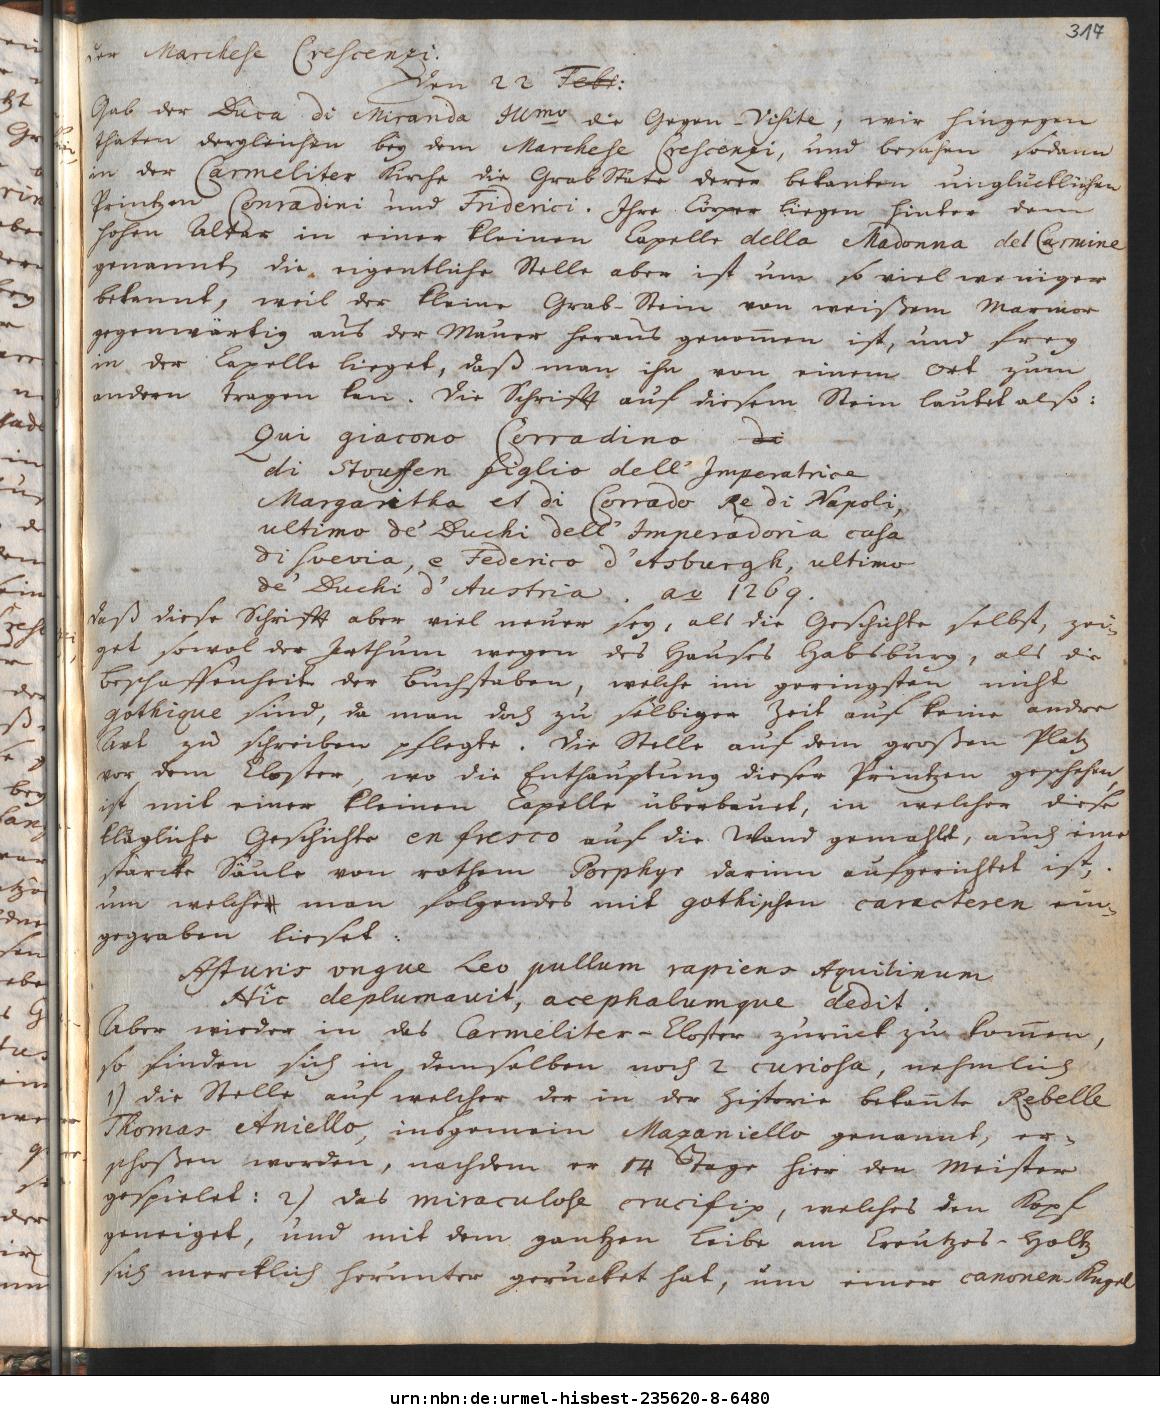 317
der Marchese Crescenzi.
Den 22 Febr:
Gab der Duca di Miranda Illmo die Gegen-Visite, wir hingegen
thaten dergleichen bey dem Marchese Crescenzi, und besahen sodann
in der Carmeliter Kirche die GrabStäte derer bekanten unglücklichen
Printzen Conradini und Friderici. Ihre Cörper liegen hinter dem
hohen Altar in einer kleinen Capelle della Madonna del Carmine
genannt, die eigentliche Stelle aber ist um so viel weniger
bekannt, weil der kleine Grab-Stein von weißem Marmor
gegenwärtig aus der Mauer heraus genom̄en ist, und frey
in der Capelle lieget, daß man ihn von einem Ort zum
andern tragen kan. Die Schrifft auf diesem Stein lautet also:
Qui giacono Corradino di
di Stouffen figlio dell' Imperatrice
Margaritha et di Corrado Re di Napoli,
ultimo de' Duchi dell' Imperadoria casa
di suevia, e Federico d'Asburgh, ultimo
de' Duchi d'Austria. ao 1269.
daß diese Schrifft aber viel neuer sey, als die Geschichte selbst, zei-
get sowol der Irrthum wegen des Hauses Habsburg, als die
Beschaffenheit der buchstaben, welche im geringsten nicht
gothique sind, da man doch zu selbiger Zeit auf keine andre
Art zu schreiben pflegte. Die Stelle auf dem großen Platz
vor dem Closter, wo die Enthauptung dieser Printzen geschehen,
ist mit einer kleinen Capelle überbauet, in welcher diese
klägliche Geschichte en fresco auf die Wand gemahlt, auch eine
starcke Säule von rothem Porphyr darinn aufgerichtet ist,
um welche man folgendes mit gothischen caracteren ein-
gegraben lieset:
Asturis ungue Leo pullum rapiens Aquilinum
Hic deplumavit, acephalumque dedit.
Aber wieder in das Carmeliter-Closter zurück zu kom̄en,
so finden sich in demselben noch 2 curiosa, nehmlich
1) die Stelle auf welcher der in der Historie bekan̄te Rebelle
Thomas Aniello, insgemein Mazaniello genannt, er-
schoßen worden, nachdem er 14 Tage hier den Meister
gespielet: 2) das miraculose crucifix, welches den Kopf
geneiget, und mit dem gantzen Leibe am Creutzes-Holtz
sich mercklich herunter gerucket hat, um einer canonen-Kugel
urn:nbn:de:urmel-hisbest-235620-8-6480